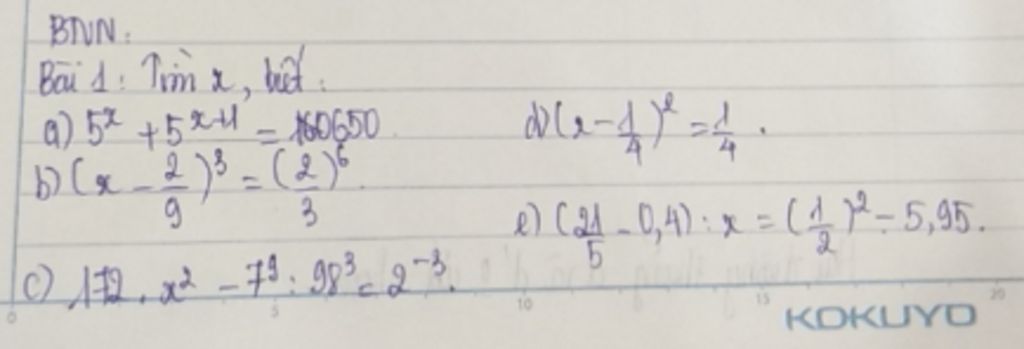 BNN:
Bài 1: Tìm x, biết:
a) 5^x + 5^{x+1} = 650
b) (x - 2/9)^3 = (2/3)^6
c) 172 . x^2 - 7^9 : 98^3 = 2^{-3}.
d) (x - 1/4)^2 = 1/4 .
e) (21/5 - 0,4) : x = (1/2)^2 - 5,95.
KOKUYO
0 5 10 15 20